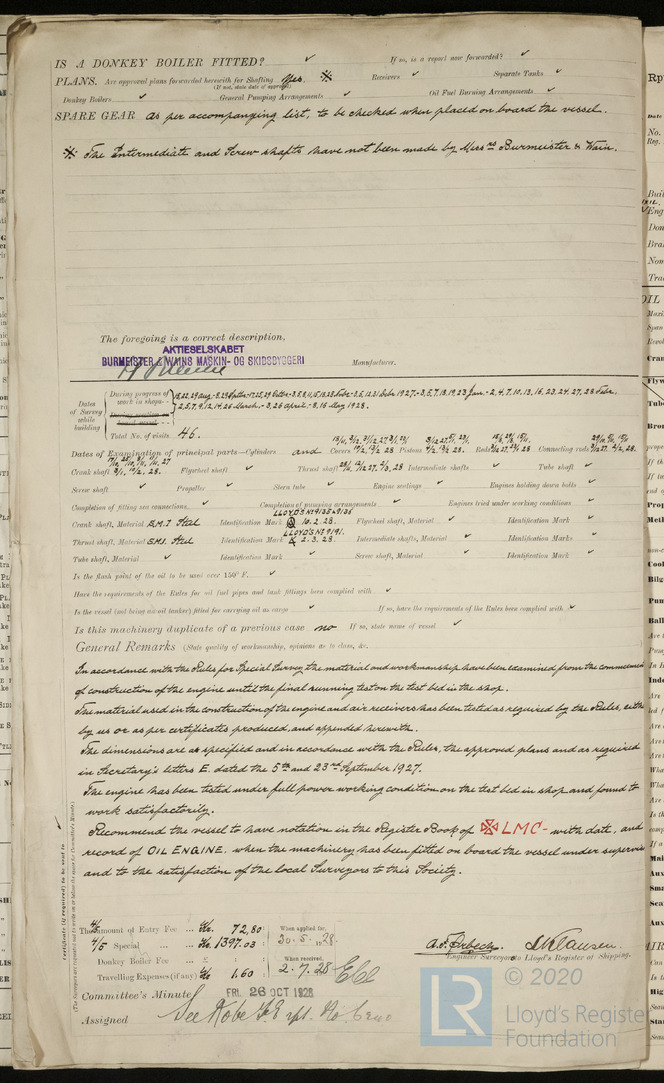 IS A DONKEY BOILER FITTED? ✓ If so, is a report now forwarded? ✓
PLANS. Are approved plans forwarded herewith for Shafting Yes. Receivers ✓ Separate Tanks ✓
(If not, state date of approval)
Donkey Boilers ✓ General Pumping Arrangements ✓ Oil Fuel Burning Arrangements ✓
SPARE GEAR as per accompanying list, to be checked when placed on board the vessel.
The Intermediate and Screw shafts have not been made by Messrs Burmeister & Wain.
The foregoing is a correct description,
AKTIESELSKABET
BURMEISTER & WAINS MASKIN- OG SKIBSBYGGERI
Manufacturer.
Dates of Survey while building
During progress of work in shops - 2, 5, 7, 9, 12, 14, 26 March. - 3, 26 April. - 8, 16 May 1928.
Total No. of visits 46.
Dates of Examination of principal parts—Cylinders and Covers Pistons Rods Connecting rods
Crank shaft Flywheel shaft ✓ Thrust shaft Intermediate shafts ✓ Tube shaft ✓
Screw shaft ✓ Propeller ✓ Stern tube ✓ Engine seatings ✓ Engines holding down bolts ✓
Completion of fitting sea connections ✓ Completion of pumping arrangements ✓ Engines tried under working conditions ✓
Crank shaft, Material S.M.I Steel Identification Mark 10.2.28. Flywheel shaft, Material ✓ Identification Mark ✓
LLOYD'S Nº 9191.
Thrust shaft, Material S.M.I. Steel Identification Mark 2.3.28. Intermediate shafts, Material ✓ Identification Marks ✓
Tube shaft, Material ✓ Identification Mark ✓ Screw shaft, Material ✓ Identification Mark ✓
Is the flash point of the oil to be used over 150° F. ✓
Have the requirements of the Rules for oil fuel pipes and tank fittings been complied with ✓
Is the vessel (not being an oil tanker) fitted for carrying oil as cargo ✓ If so, have the requirements of the Rules been complied with ✓
Is this machinery duplicate of a previous case no If so, state name of vessel ✓
General Remarks (State quality of workmanship, opinions as to class, &c.
In accordance with the Rules for Special Survey the material and workmanship have been examined from the
of construction of the engine until the final running test on the test bed in the shop.
The material used in the construction of the engine and air receivers has been tested as required by the Rules,
by us or as per certificates produced, and appended herewith.
The dimensions are as specified and in accordance with the Rules, the approved plans and as required
in Secretary's letters E. dated the 5th and 23rd September 1927.
The engine has been tested under full power working condition on the test bed in shop and found to
work satisfactorily.
Recommend the vessel to have notation in the Register Book of LMC - with date, and
record of OIL ENGINE, when the machinery has been fitted on board the vessel under
and to the satisfaction of the local Surveyors to this Society.
Certificate (if required) to be sent to
(The Surveyors are requested not to write on or below the space for Committee's Minute.)
The amount of Entry Fee ... Kr. 72.80
4/5 Special ... Kr. 1397.03
Donkey Boiler Fee ...
Travelling Expenses (if any) Kr 1.60
When applied for, 30.5.1928.
When received, 2.7.28
Engineer Surveyors to Lloyd's Register of Shipping.
Committee's Minute FRI. 26 OCT 1928
Assigned See Kobe
LR
© 2020
Lloyd's Registe
Foundation